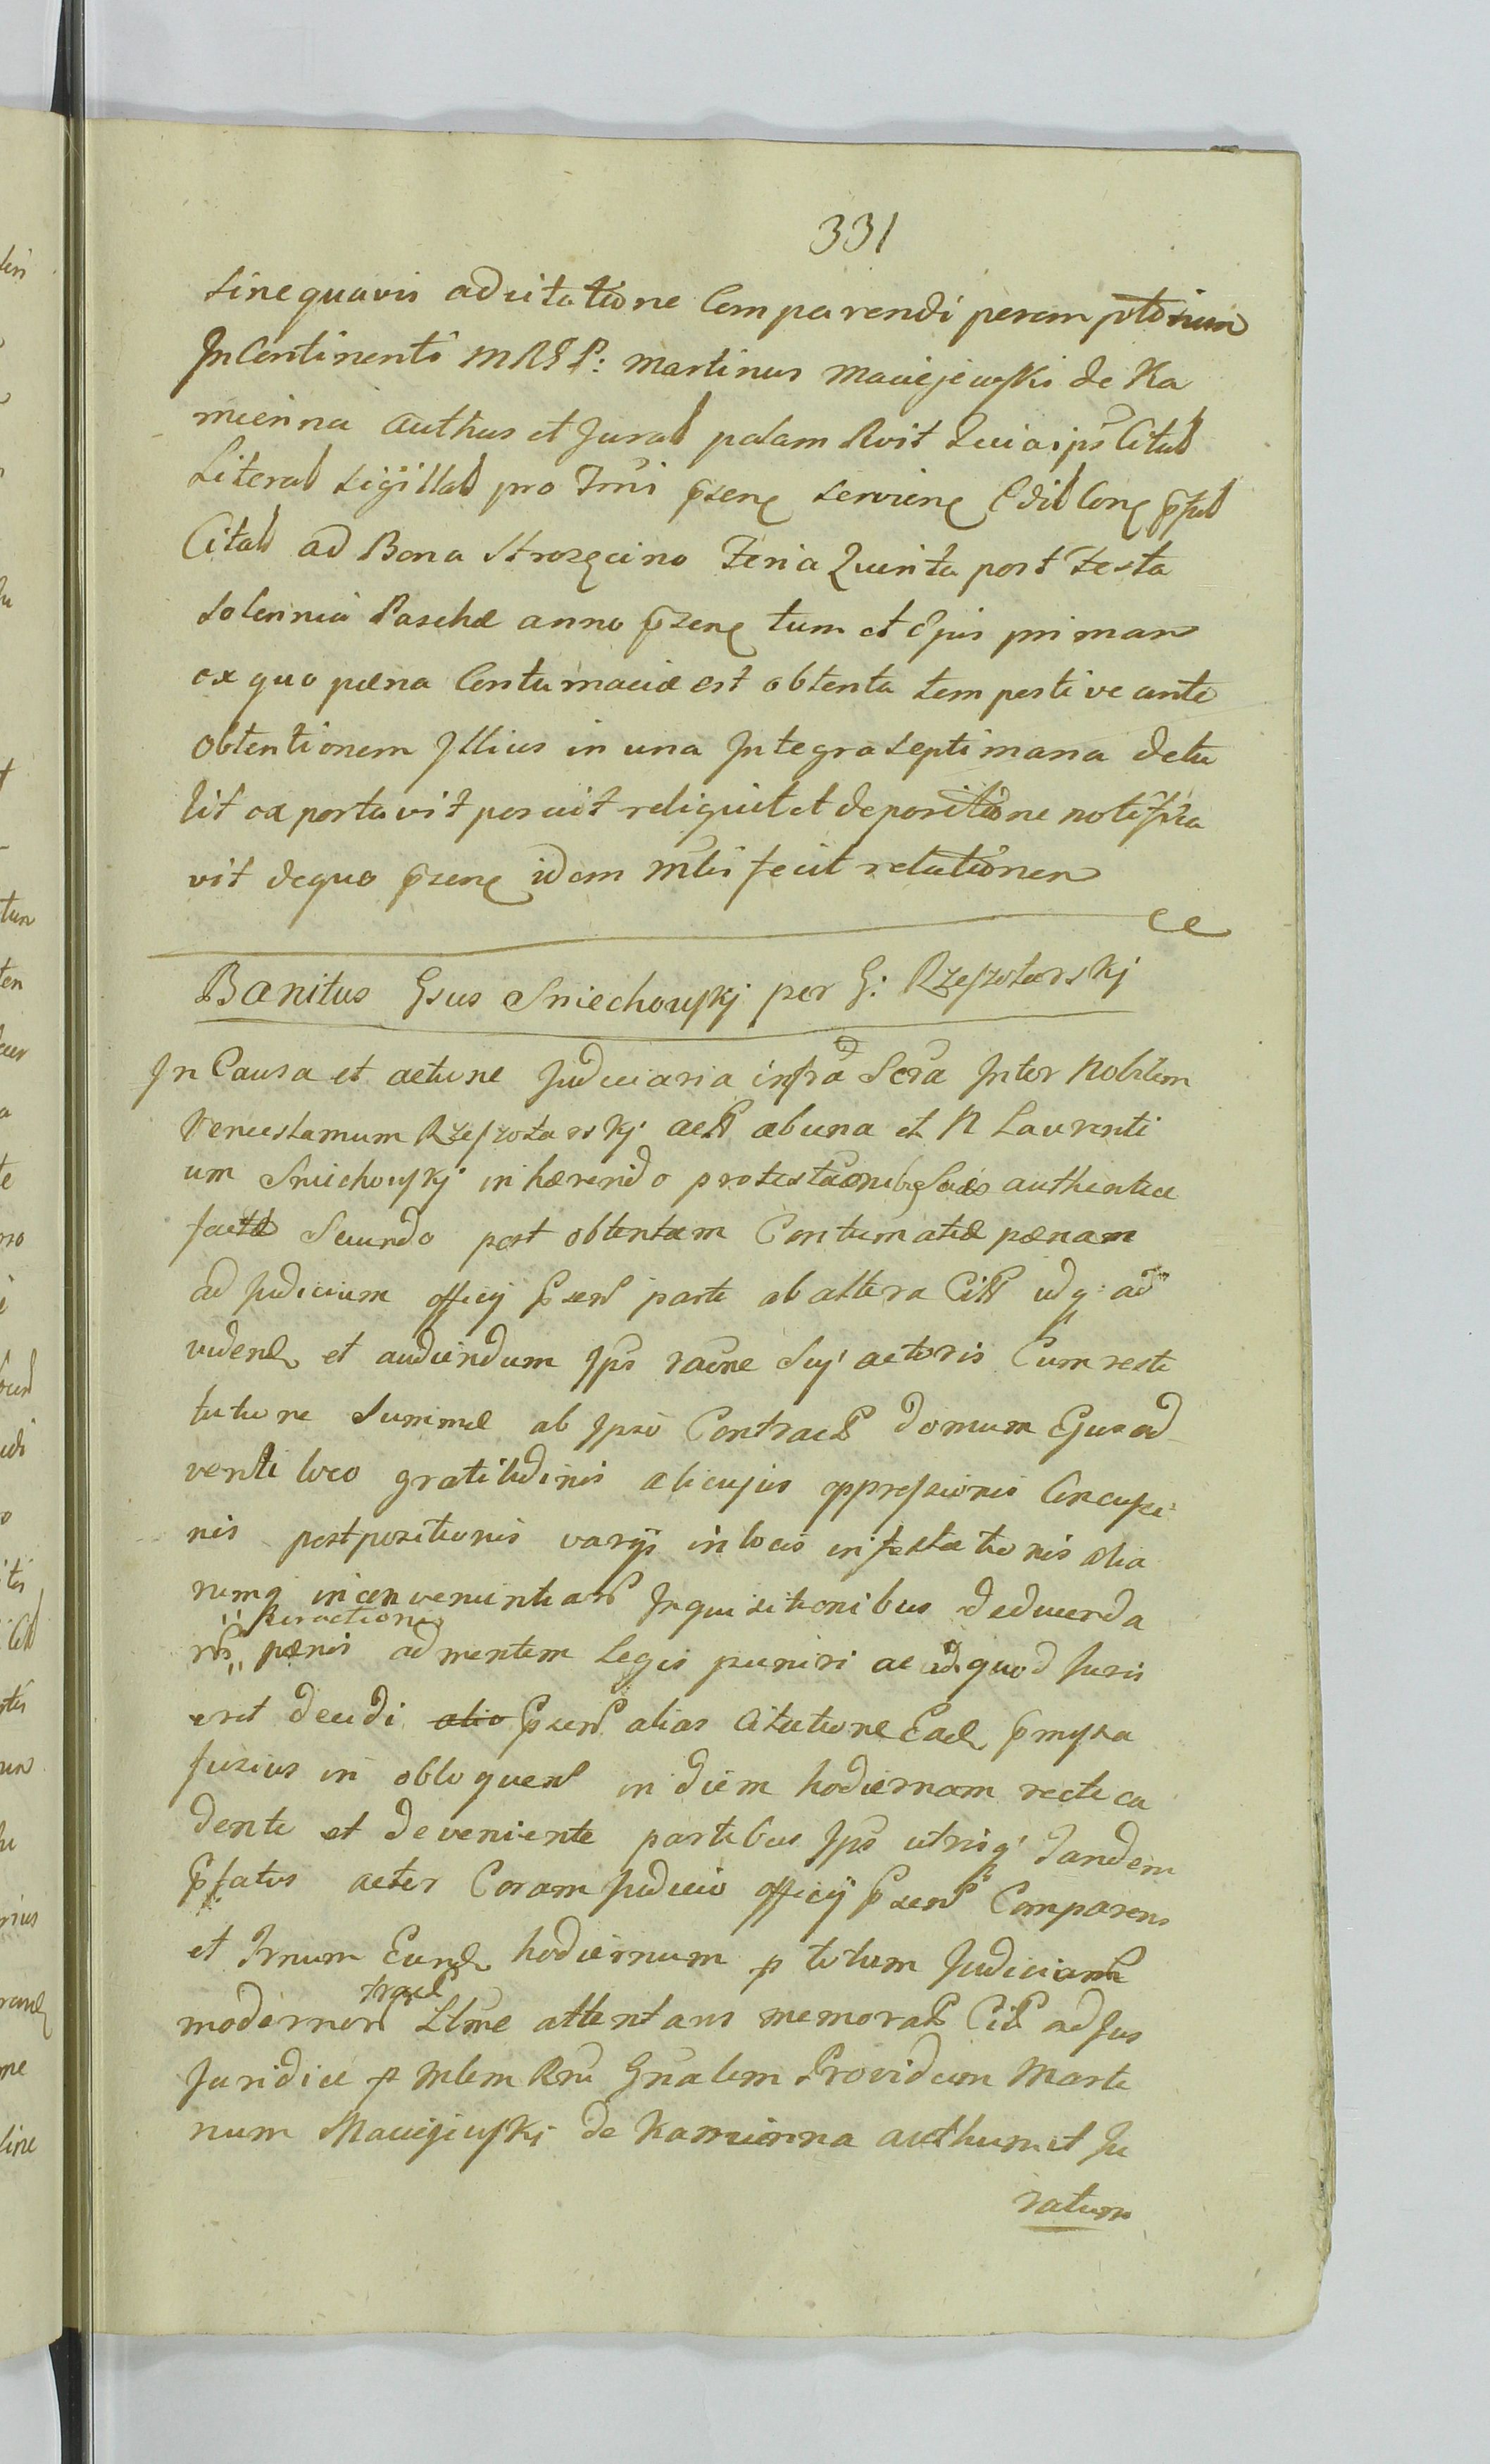 331
sine quavis adcitatione Comparendi peremptorium
In Continenti MRGP: Martinus Maciejewski de Ka
mienna Authus et Jurat palam Rvit Quia ips Citat
Literat sigillat pro Trni pzen servien Edit Con pzt
Citat ad Bona Strozęcino Feria Quinta post Festa
Solennia Paschæ anno pzen tum et Ejus primam
ex quo pæna Contumaciæ est obtenta tempestive ante
Obtentionem Illius in una Integra Septimana detu
lit exportavit posuit reliquit et depositione notifica
vit dequo pzen idem Mtis fecit relationem
Banitus Gsus Sniechowskj per G: Rzeszotarskj
In Causa et actione Judiciaria infra Scra Inter Nobilem
Venceslamum Rzeszotarskj act ab una et N Laurenti
um Sniechowskj inhærendo protestaonibq Suis authentice
factæ Secundo post obtentam Contumatiæ pænam
ad Judicium officij pzent parte ab altera Citt idq: ad
videnđ et audiendum Ips raone Sui actoris Cum resti
tutione Summæ ab Ipso Contract domum Ejus ad
venti loco gratitudinis alicujus oppressionis
nis postpositionis varijs in locis infestationis alia
rumq inconvenientiar Inquisitionibus deducenda
peractione
rbs pænis ad mentem Legis puniri ac idquod Juris
erit decidi alio pzent alias Citatione Ead pmyssa
fusius in obloquent in diem hodiernam recte ca
dente et deveniente partibus Ips utrisq Tandem
pfatus actor Coram Judicio officij pzent Comparens
et Trnum Eund hodiernum p totum Judiciarie
tract
modernor Llme attentans memorat Citt ad Jus
Juridice p Mlem Rni Gnalem Providum Marti
num Maciejewskj de Kamienna authum et Ju
ratum